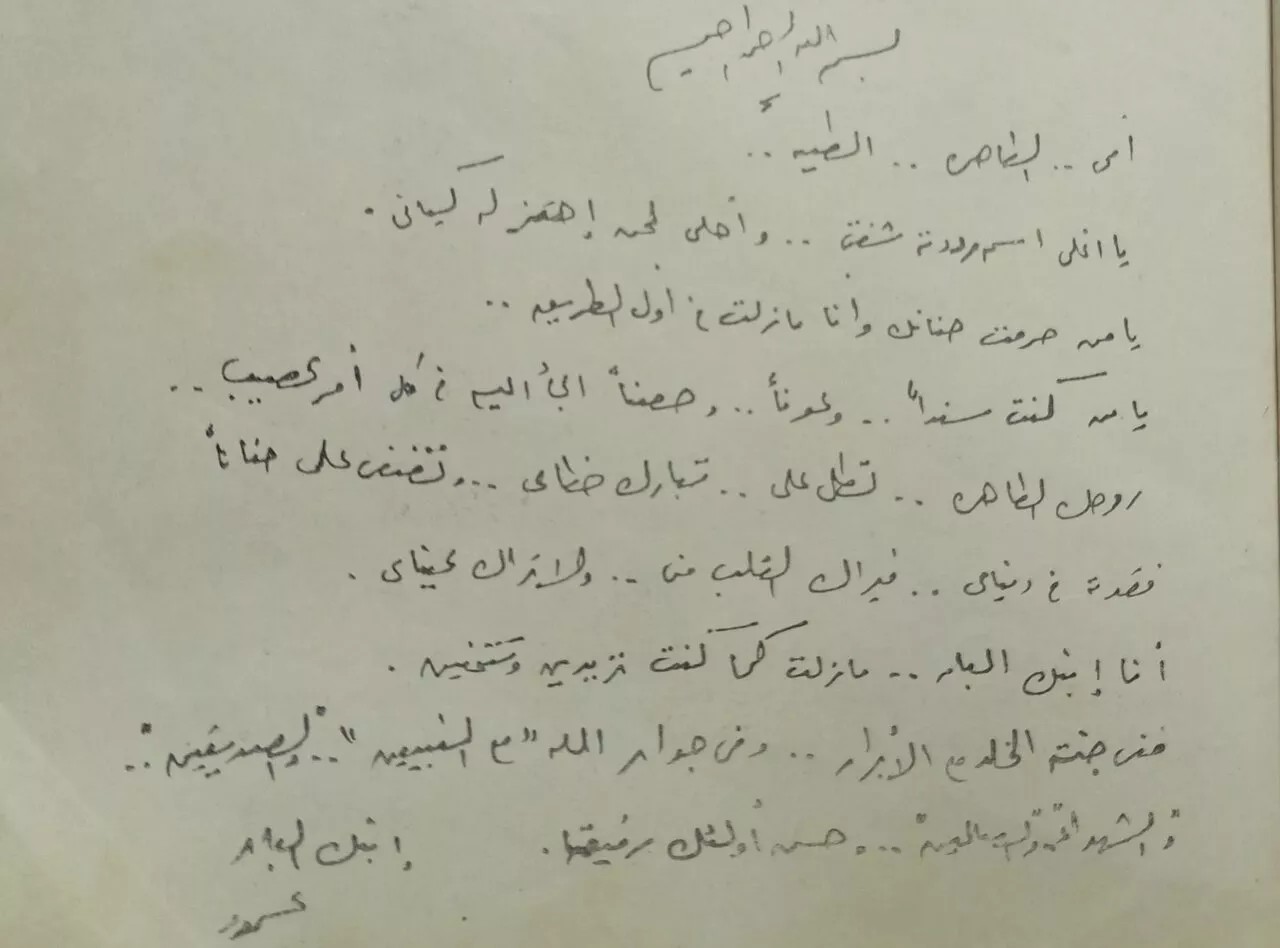 بسم الله الرحمن الرحيم
أمى .. الطاهره .. الطيبه ..
يا اغلى اسم رددته شفتى .. وأحلى لحن إهتز له كيانى .
يا من حرمت حنانك وانا مازلت فى أول الطريق ..
يا من كنت سنداً .. وعوناً .. وحصناً الجأ اليه فى كل أمر عصيب ..
روحك الطاهره .. تطل على .. تبارك خطاى ... وتضفى على حناناً
فقدته فى دنياى .. فيراك القلب منى .. ولا تراك عيناى .
أنا إبنك البار .. مازلت كما كنت تريدين وتتمنين .
ففى جنة الخلد مع الأبرار .. وفى جوار الله "مع النبيين" .. "والصديقين" ..
"والشهداء" "والصالحين" ... وحسن أولئك رفيقا .
إبنك البار